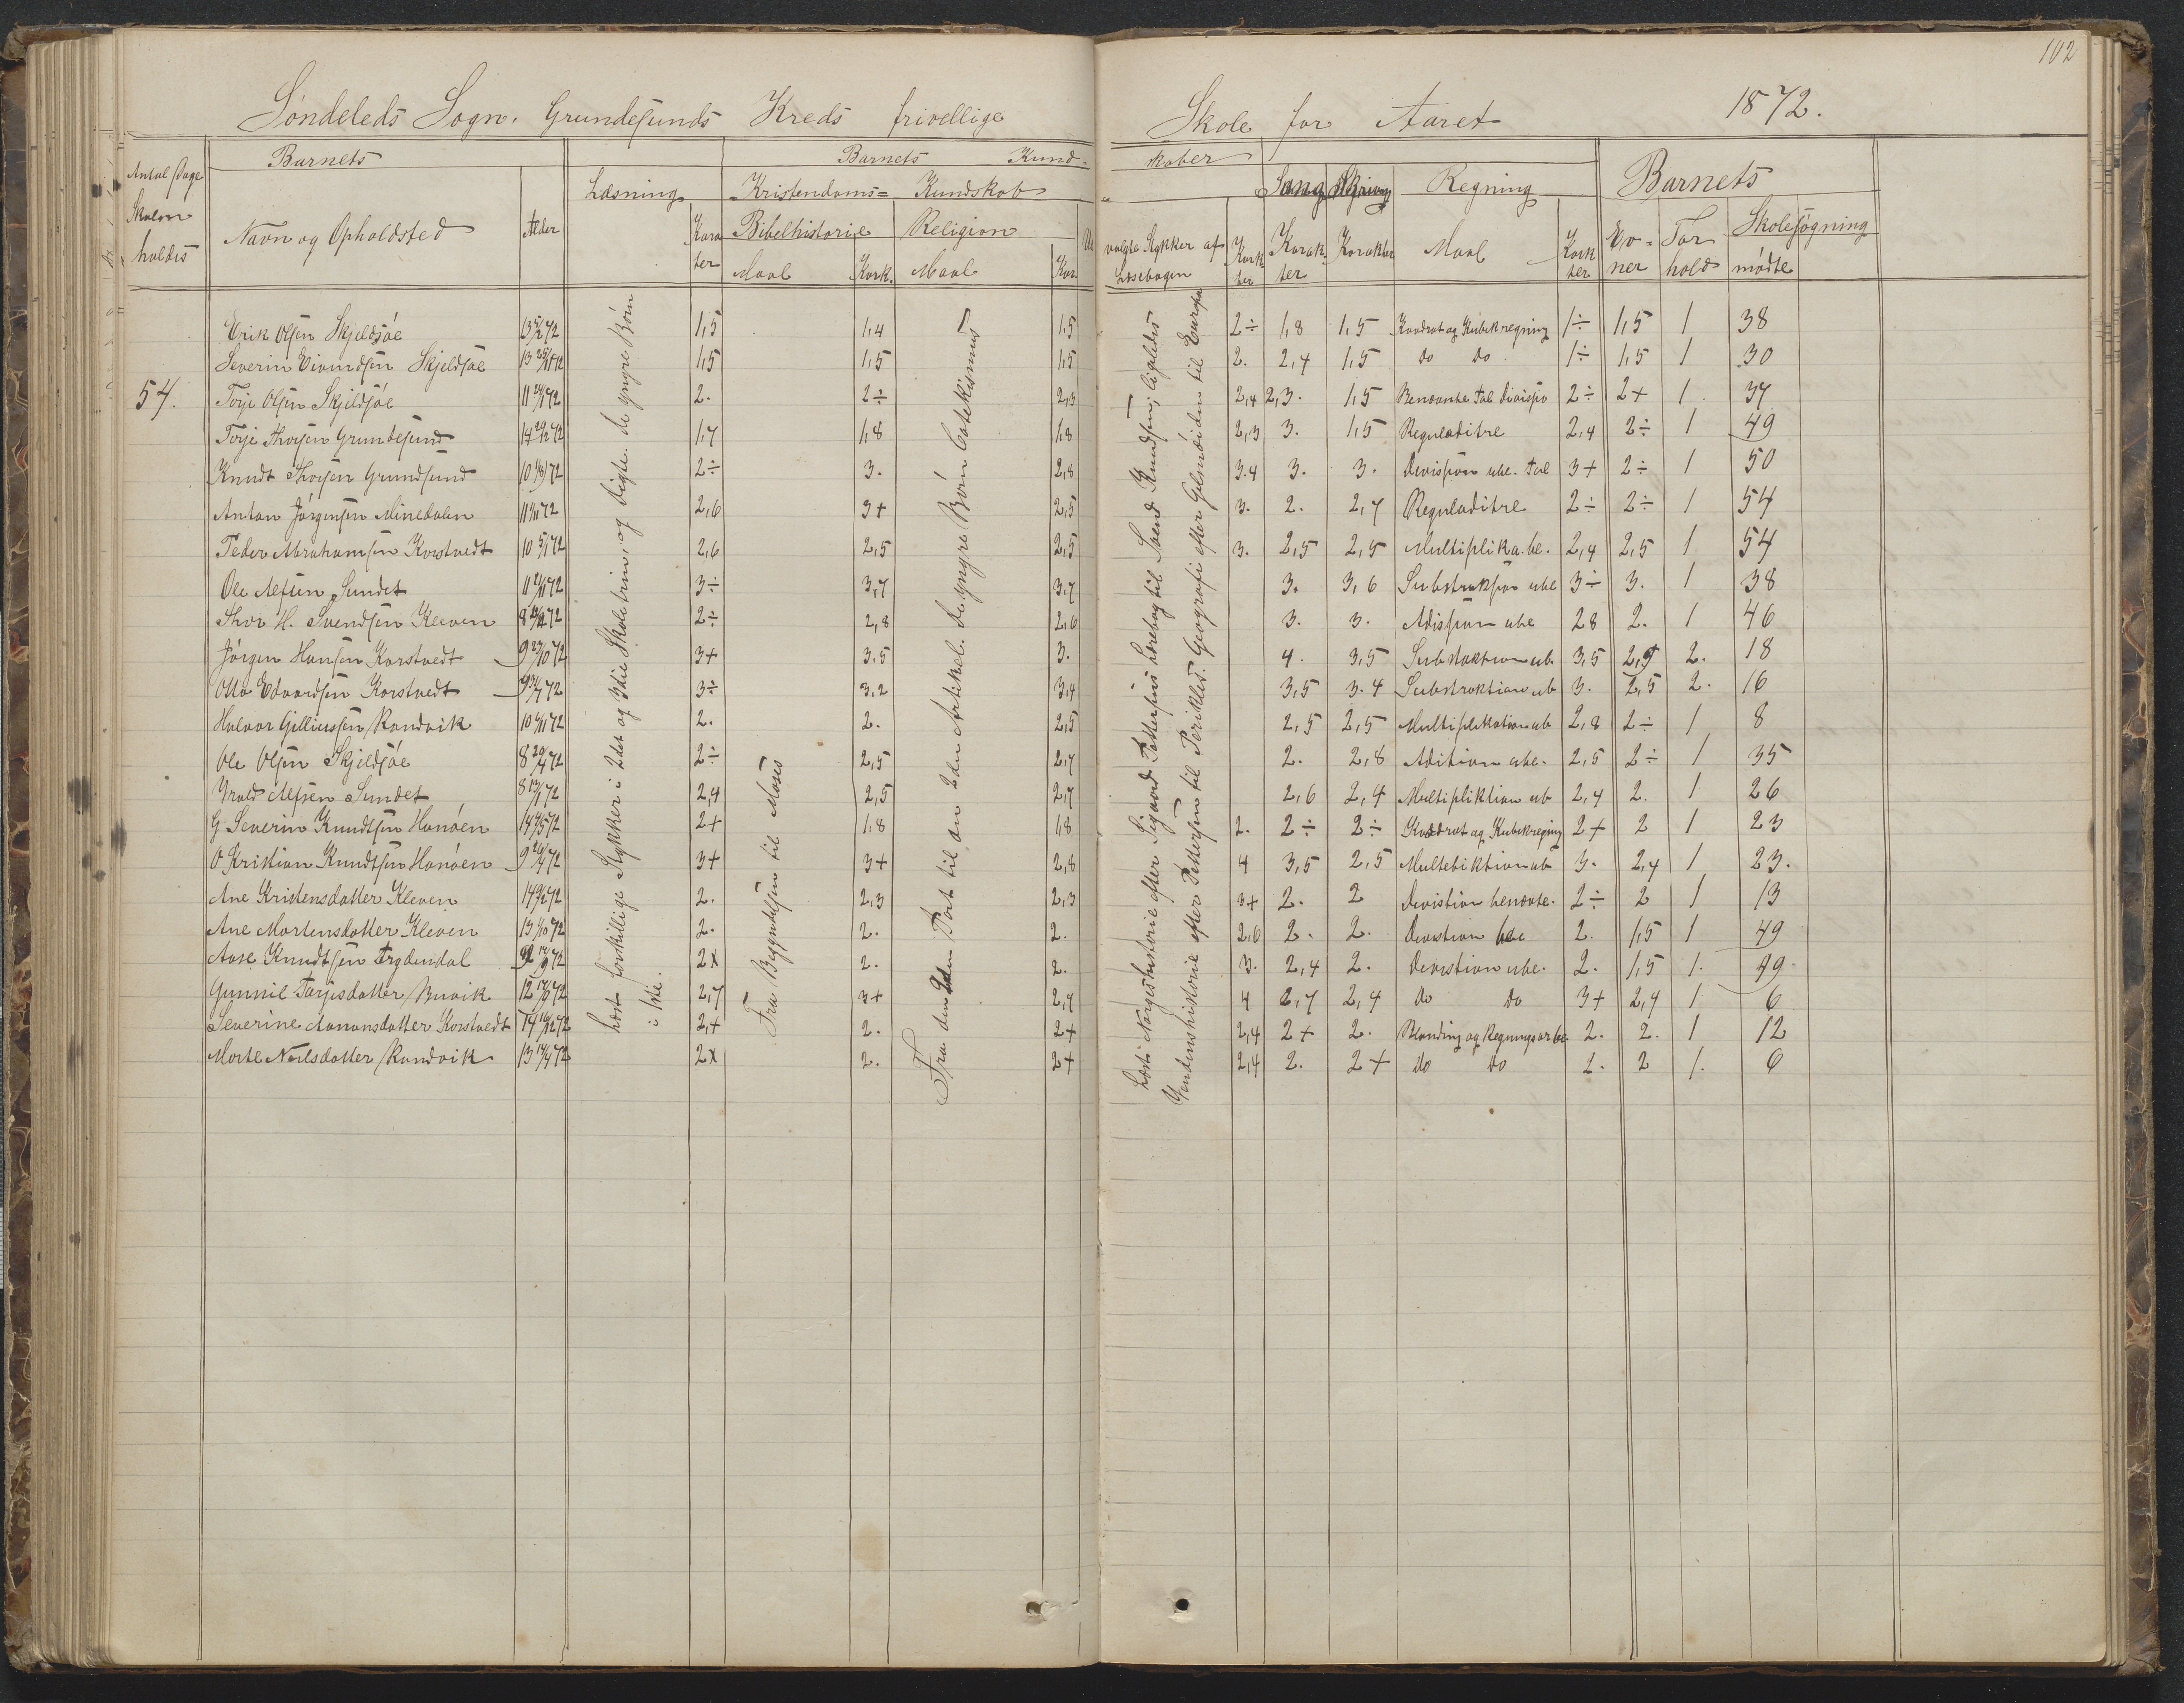 102
Søndeleds Sogn. Grundesunds Kreds frivellige Skole for Aaret 1872.
Antal Dage Skolen holdes
Barnets
Navn og Opholdsted
Alder
Barnets Kundskaber
Læsning
Karakter
Kristendoms- Kundskab
Bibelhistorie
Maal
Kark.
Religion
Maal
Kar.
Udvalgte Stykker af Læsebogen
Karkter
Sang
Karakter
Skrivning
Karakter
Regning
Maal
Karkter
Barnets
Evner
Forhold
Skolesøgning
mødte
54.
Erik Olsen Skjeldsøe 13 5/2 72 1,5 1,4 1,5 2÷ 1,8 1,5 Kvadrat og Kubikregning 1÷ 1,5 1 38
Severin Eivindsen Skjeldsøe 13 1,5 1,5 1,5 2. 2,4 1,5 do do 1÷ 1,5 1 30
Torje Olsen Skjeldsøe 11 2. 2÷ 2,3 2,4 2,3. 1,5 Benævnte Tal division 2÷ 2+ 1. 37
Torje Thorsen Grundesund 14 1,7 1,8 1,8 2,3 3. 1,5 Reguladitre 2,4 2÷ 1 49
Knudt Thorsen Grundsund 10 2÷ 3. 2,8 3.4 3. 3. Division ube. Tal 3+ 2÷ 1 50
Anton Jørgensen Minedalen 11 2,6 3+ 2,5 3. 2. 2,7 Reguladitre 2÷ 2÷ 1 54
Peder Abrahamsen Korstvedt 10 2,6 2,5 2,5 3. 2,5 2,5 Multiplika. be. 2,4 2,5 1 54
Ole Alfsen Sundet 11 3÷ 3,7 3,7 3. 3,6 Substraksion ube 3÷ 3. 1 38
Thor H. Svendsen Kleven 8 2÷ 2,8 2,6 3. 3. Adission ube 28 2. 1 46
Jørgen Hansen Korstvedt 9 3+ 3.5 3. 4. 3,5 Substaktion ub. 3,5 2,5 2. 18
Otto Edvardsen Korstvedt 9 3÷ 3,2 3,4 3,5 3.4 Substraktion ub 3. 2,5 2. 16
Halvor Gilliussen Randvik 10 2. 2. 2,5 2,5 2,5 Multiplikation ub 2,8 2÷ 1 8
Ole Olsen Skjeldsøe 8 2÷ 2,5 2,7 2. 2,8 Adition ube. 2,5 2÷ 1 35
Alfsen Sundet 8 2,4 2,5 2,7 2,6 2,4 Multipliktion ub 2,4 2. 1 26
G. Severin Knudtsen Hanøen 14 2+ 1,8 1,8 2. 2÷ 2÷ Kvadrat og Kubikregning 2+ 2 1 23
O Kristian Knudtsen Hanøen 9 3+ 3+ 2,8 4 3,5 2,5 Multebiktion ub 3. 2,4 1 23.
Ane Kristensdatter Kleven 14 2. 2,3 2,3 3+ 2. 2 Devistion benævte. 2÷ 2 1 13
Ane Mortensdatter Kleven 13 2. 2. 2. 2,6 2. 2. Devistion ube 2. 1,5 1 49
Aase Knudtsen 2x 2. 2. 3. 2,4 2. Devistion ube. 2. 1,5 1. 49.
Gunnil Tarjesdatter Buvik 12 2,7 3+ 2,7 4 2,7 2,4 do do 3+ 2,4 1 6
Severine Aanonsdatter Korstvedt 14 2,+ 2. 2+ 2,4 2+ 2. Blanding og Regningsarter 2. 2. 1 12
Marte Neilsdatter Randvik 13 2x 2. 2+ 2,4 2. 2+ do do 2. 2 1. 6
Læst forskillige Stykker i 2det og 3die Skoletrin, og Digte. de yngre Børn i 1ste.
Fra Begyndelsen til Moses
Fra den 2den Part til den 2den Artikel. De yngre Børn Catekismus
Læst Norgeshistorie efter Sigvard Pettersens Lærebog til Svend Knudsen; ligeledes
Verdenshistorie efter Pettersen til Perikles. Geografi efter til Europa